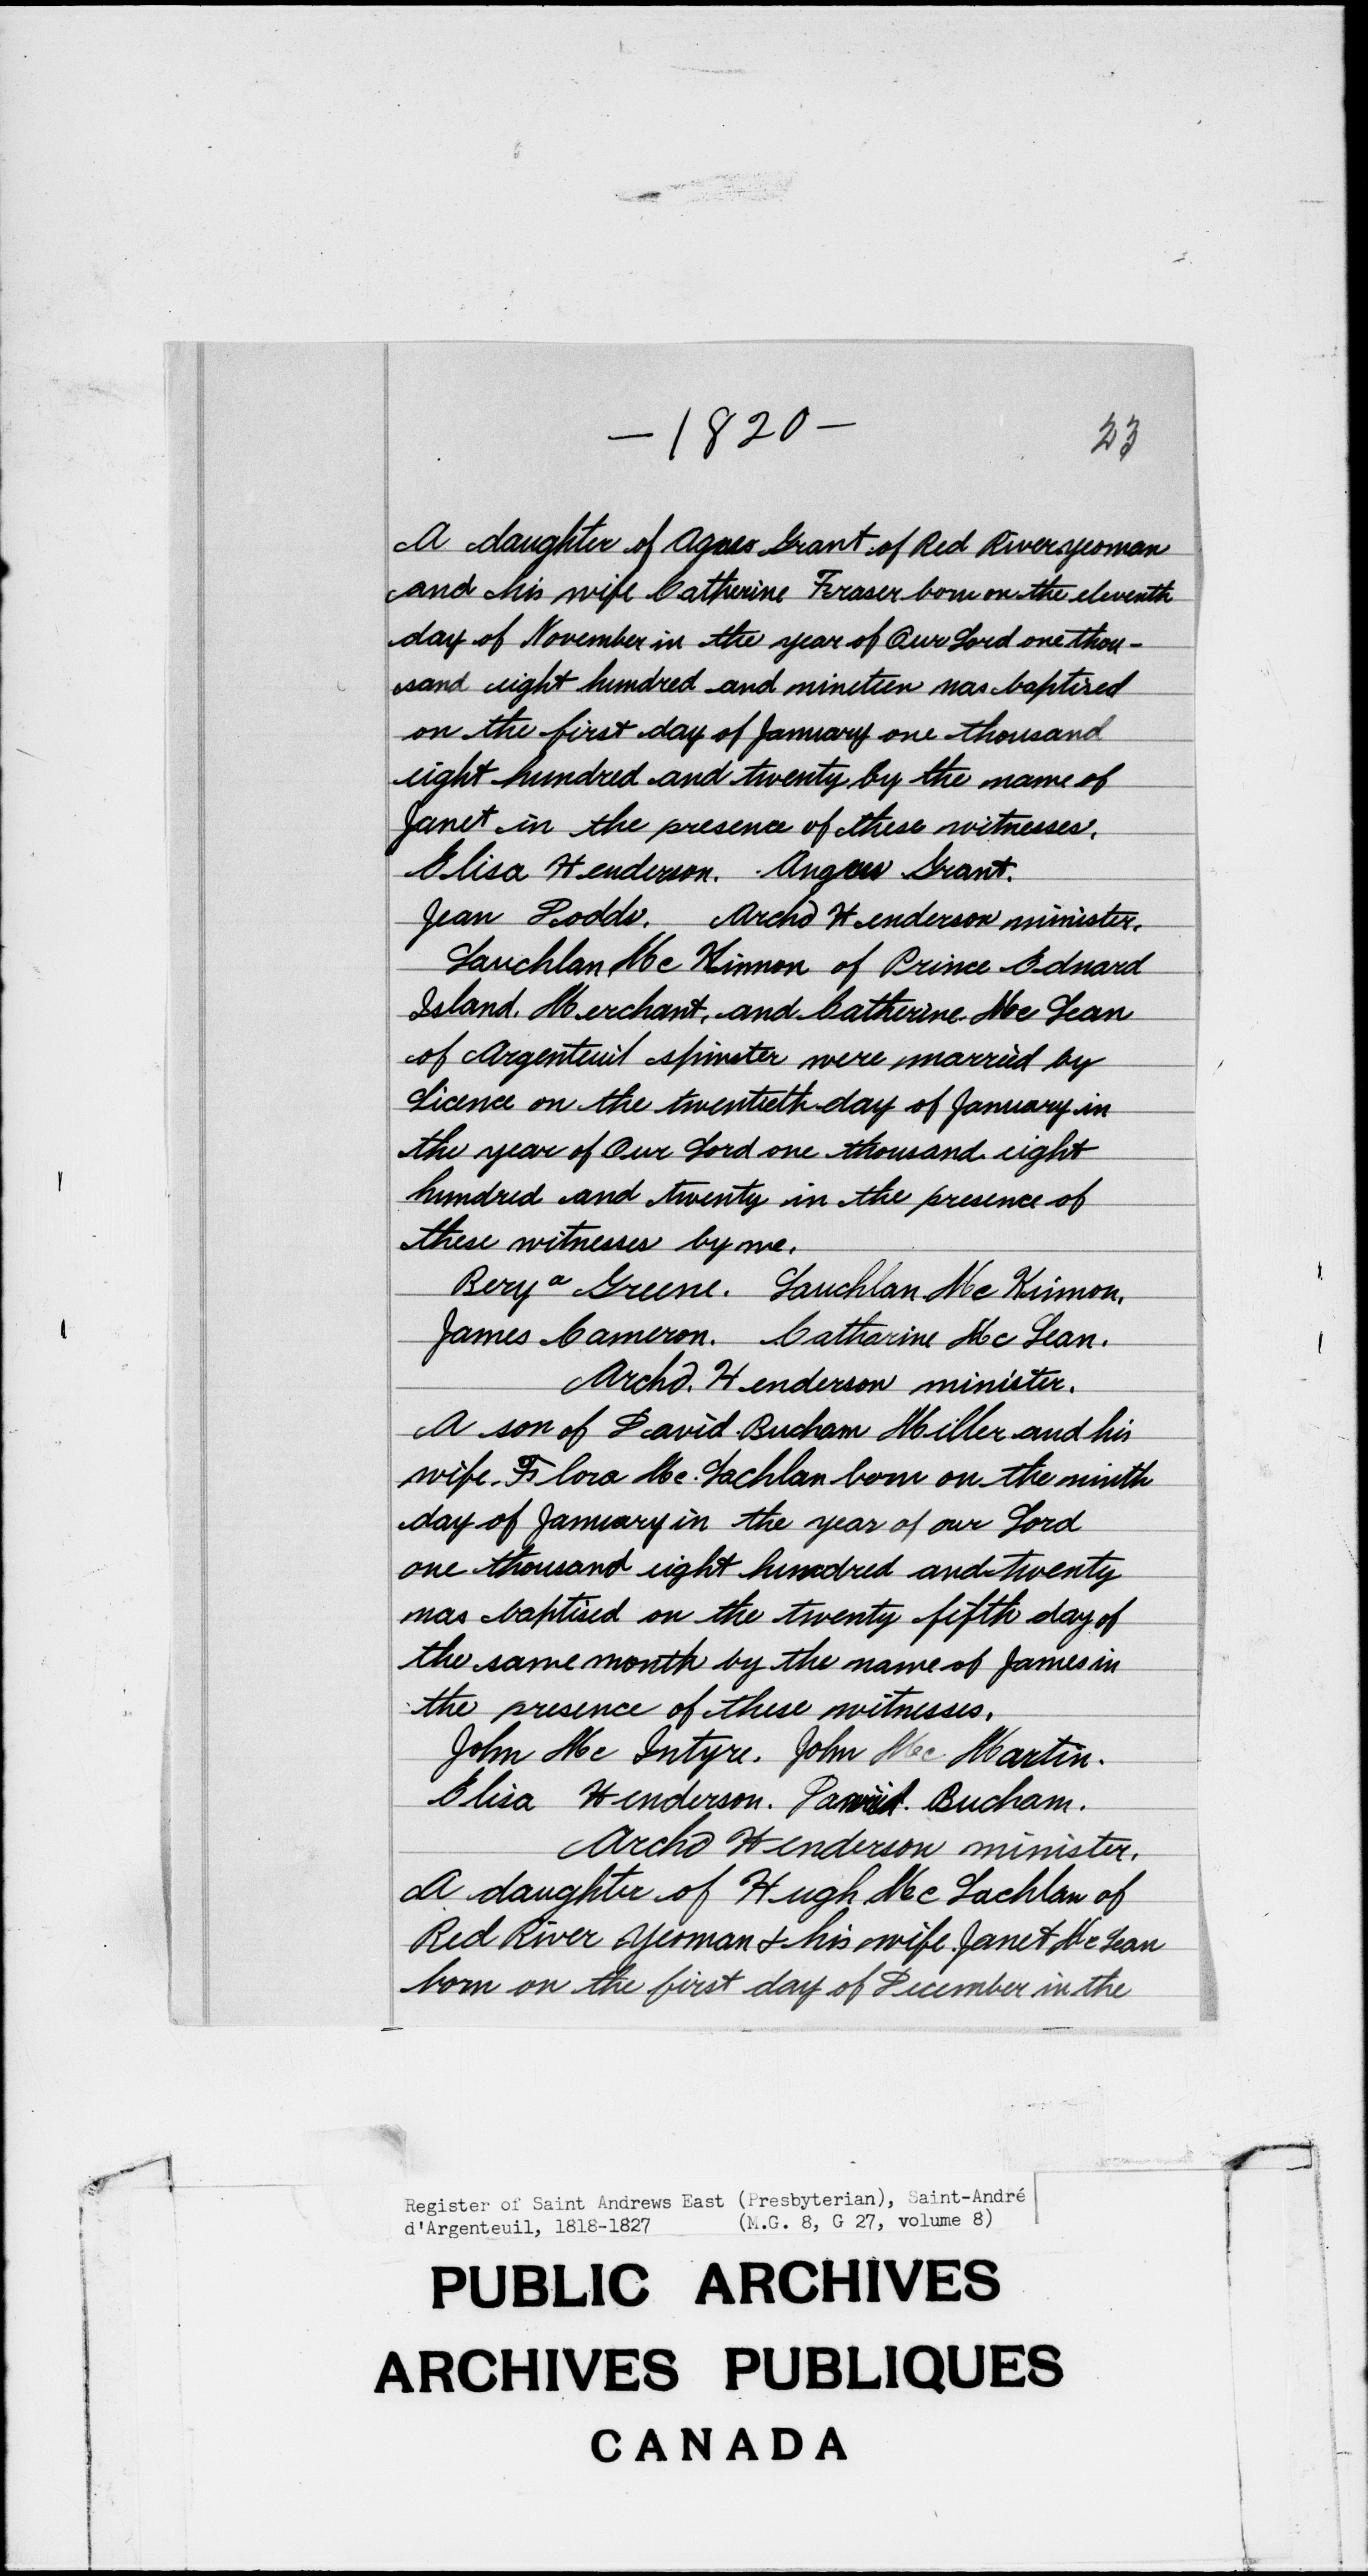 — 1820 —
23
A daughter of Agnes Grant of Red River yeoman
and his wife Catherine Fraser born on the eleventh
day of November in the year of Our Lord one thou-
sand eight hundred and nineteen was baptized
on the first day of January one thousand
eight hundred and twenty by the name of
Janet in the presence of these witnesses.
Elisa Henderson. Angus Grant.
Jean Dodds. Archd Henderson minister.
Lauchlan Mc Kinnon of Prince Edward
Island. Merchant, and Catherine Mc Lean
of Argenteuil spinster were married by
Licence on the twentieth day of January in
the year of Our Lord one thousand eight
hundred and twenty in the presence of
these witnesses by me.
Greene. Lauchlan Mc Kinnon.
James Cameron. Catharine Mc Lean.
Archd. Henderson minister.
A son of David Bucham Miller and his
wife Flora Mc Lachlan born on the ninth
day of January in the year of our Lord
one thousand eight hundred and twenty
was baptised on the twenty fifth day of
the same month by the name of James in
the presence of these witnesses.
John Mc Intyre. John Mc Martin.
Elisa Henderson. David Bucham.
Archd Henderson minister.
A daughter of Hugh Mc Lachlan of
Red River yeoman & his wife Janet Mc Lean
born on the first day of December in the
Register of Saint Andrews East (Presbyterian), Saint-André
d'Argenteuil, 1818-1827 (M.G. 8, G 27, volume 8)
PUBLIC ARCHIVES
ARCHIVES PUBLIQUES
CANADA